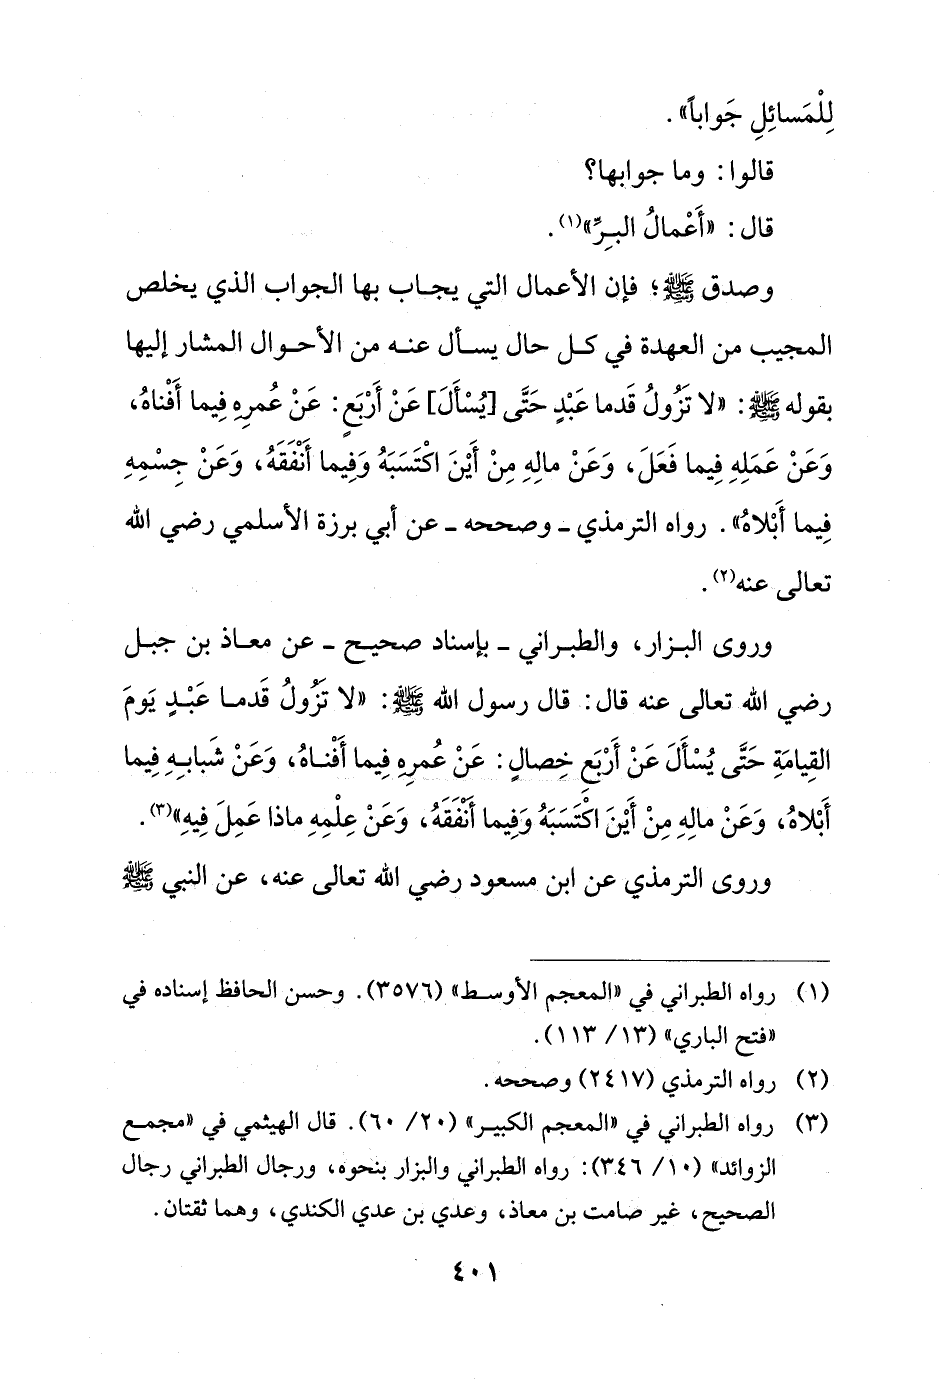 لِلْمَسائِلِ جَواباً» .
قالوا: وما جوابها؟
قال: «أَعْمالُ البِرِّ»(١).
وصدق ﷺ؛ فإن الأعمال التي يجاب بها الجواب الذي يخلص
المجيب من العهدة في كل حال يسأل عنه من الأحوال المشار إليها
بقوله ﷺ: «لا تَزُولُ قَدما عَبْدٍ حَتَّى [يُسْأَلَ] عَنْ أَرْبَعٍ: عَنْ عُمرِهِ فِيما أَفْناهُ،
وَعَنْ عَمَلِهِ فِيما فَعَلَ، وَعَنْ مالِهِ مِنْ أَيْنَ اكْتَسَبَهُ وَفِيما أَنْفَقَهُ، وَعَنْ جِسْمِهِ
فِيما أَبْلاهُ». رواه الترمذي ـ وصححه ـ عن أبي برزة الأسلمي رضي الله
تعالى عنه(٢).
وروى البزار، والطبراني ـ بإسناد صحيح ـ عن معاذ بن جبل
رضي الله تعالى عنه قال: قال رسول الله ﷺ: «لا تَزُولُ قَدما عَبْدٍ يَومَ
القِيامَةِ حَتَّى يُسْأَلَ عَنْ أَرْبَعِ خِصالٍ: عَنْ عُمرِهِ فِيما أَفْناهُ، وَعَنْ شَبابِهِ فِيما
أَبْلاهُ، وَعَنْ مالِهِ مِنْ أَيْنَ اكْتَسَبَهُ وَفِيما أَنْفَقَهُ، وَعَنْ عِلْمِهِ ماذا عَمِلَ فِيهِ»(٣).
وروى الترمذي عن ابن مسعود رضي الله تعالى عنه، عن النبي ﷺ
(١) رواه الطبراني في «المعجم الأوسط» (٣٥٧٦). وحسن الحافظ إسناده في
«فتح الباري» (١٣/ ١١٣).
(٢) رواه الترمذي (٢٤١٧) وصححه.
(٣) رواه الطبراني في «المعجم الكبير» (٢٠/ ٦٠). قال الهيثمي في «مجمع
الزوائد» (١٠/ ٣٤٦): رواه الطبراني والبزار بنحوه، ورجال الطبراني رجال
الصحيح، غير صامت بن معاذ، وعدي بن عدي الكندي، وهما ثقتان.
٤٠١